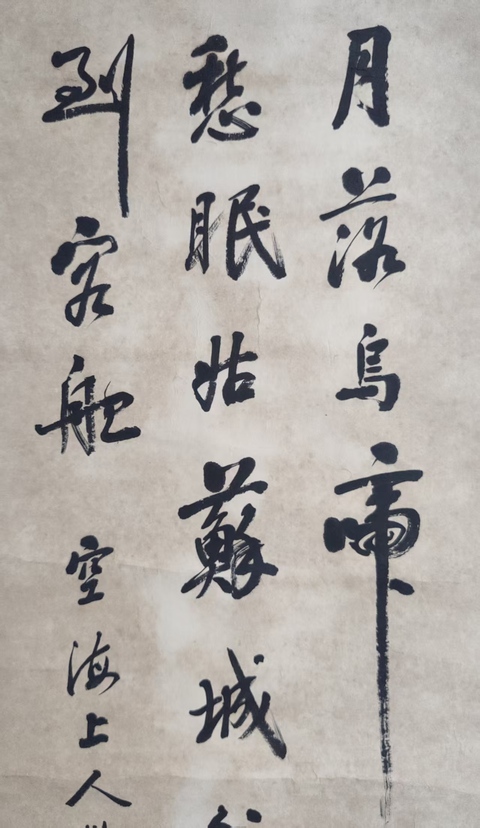 月落烏啼
愁眠姑蘇城
到客船
空海上人